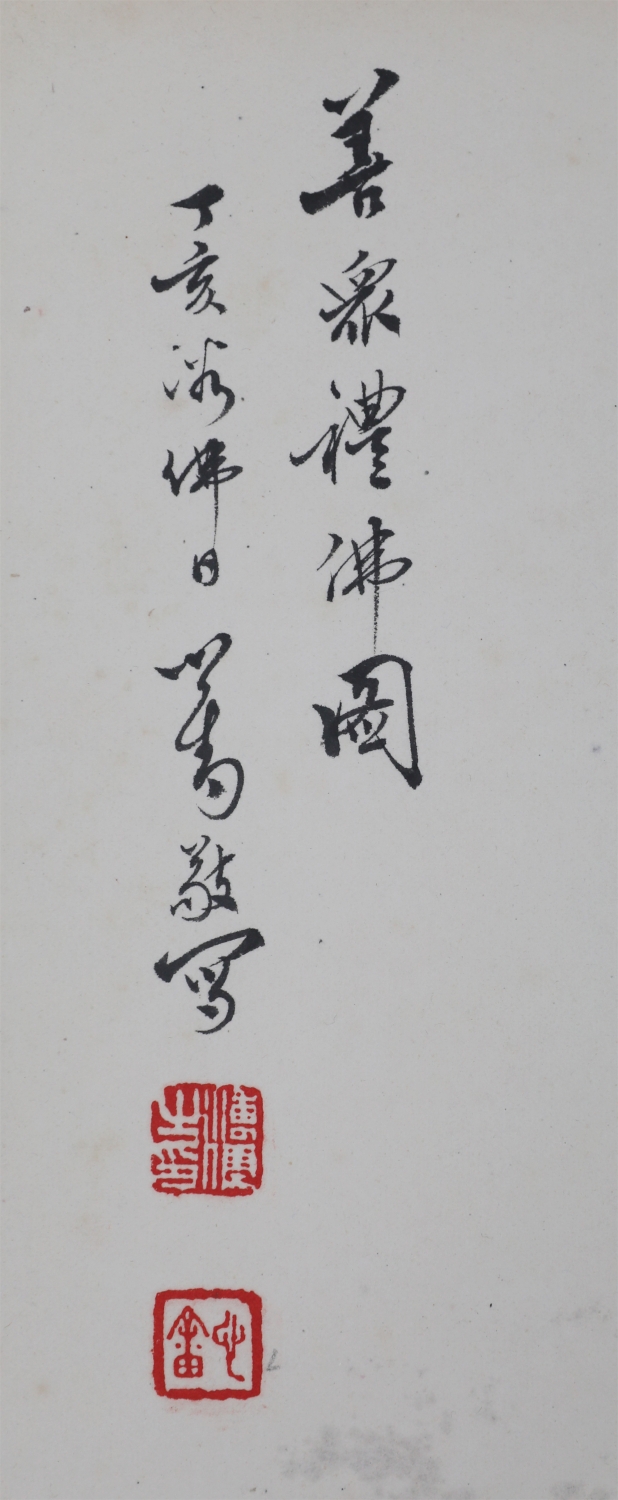 善眾禮佛圖
丁亥浴佛日心畬敬寫
溥儒之印
心畬